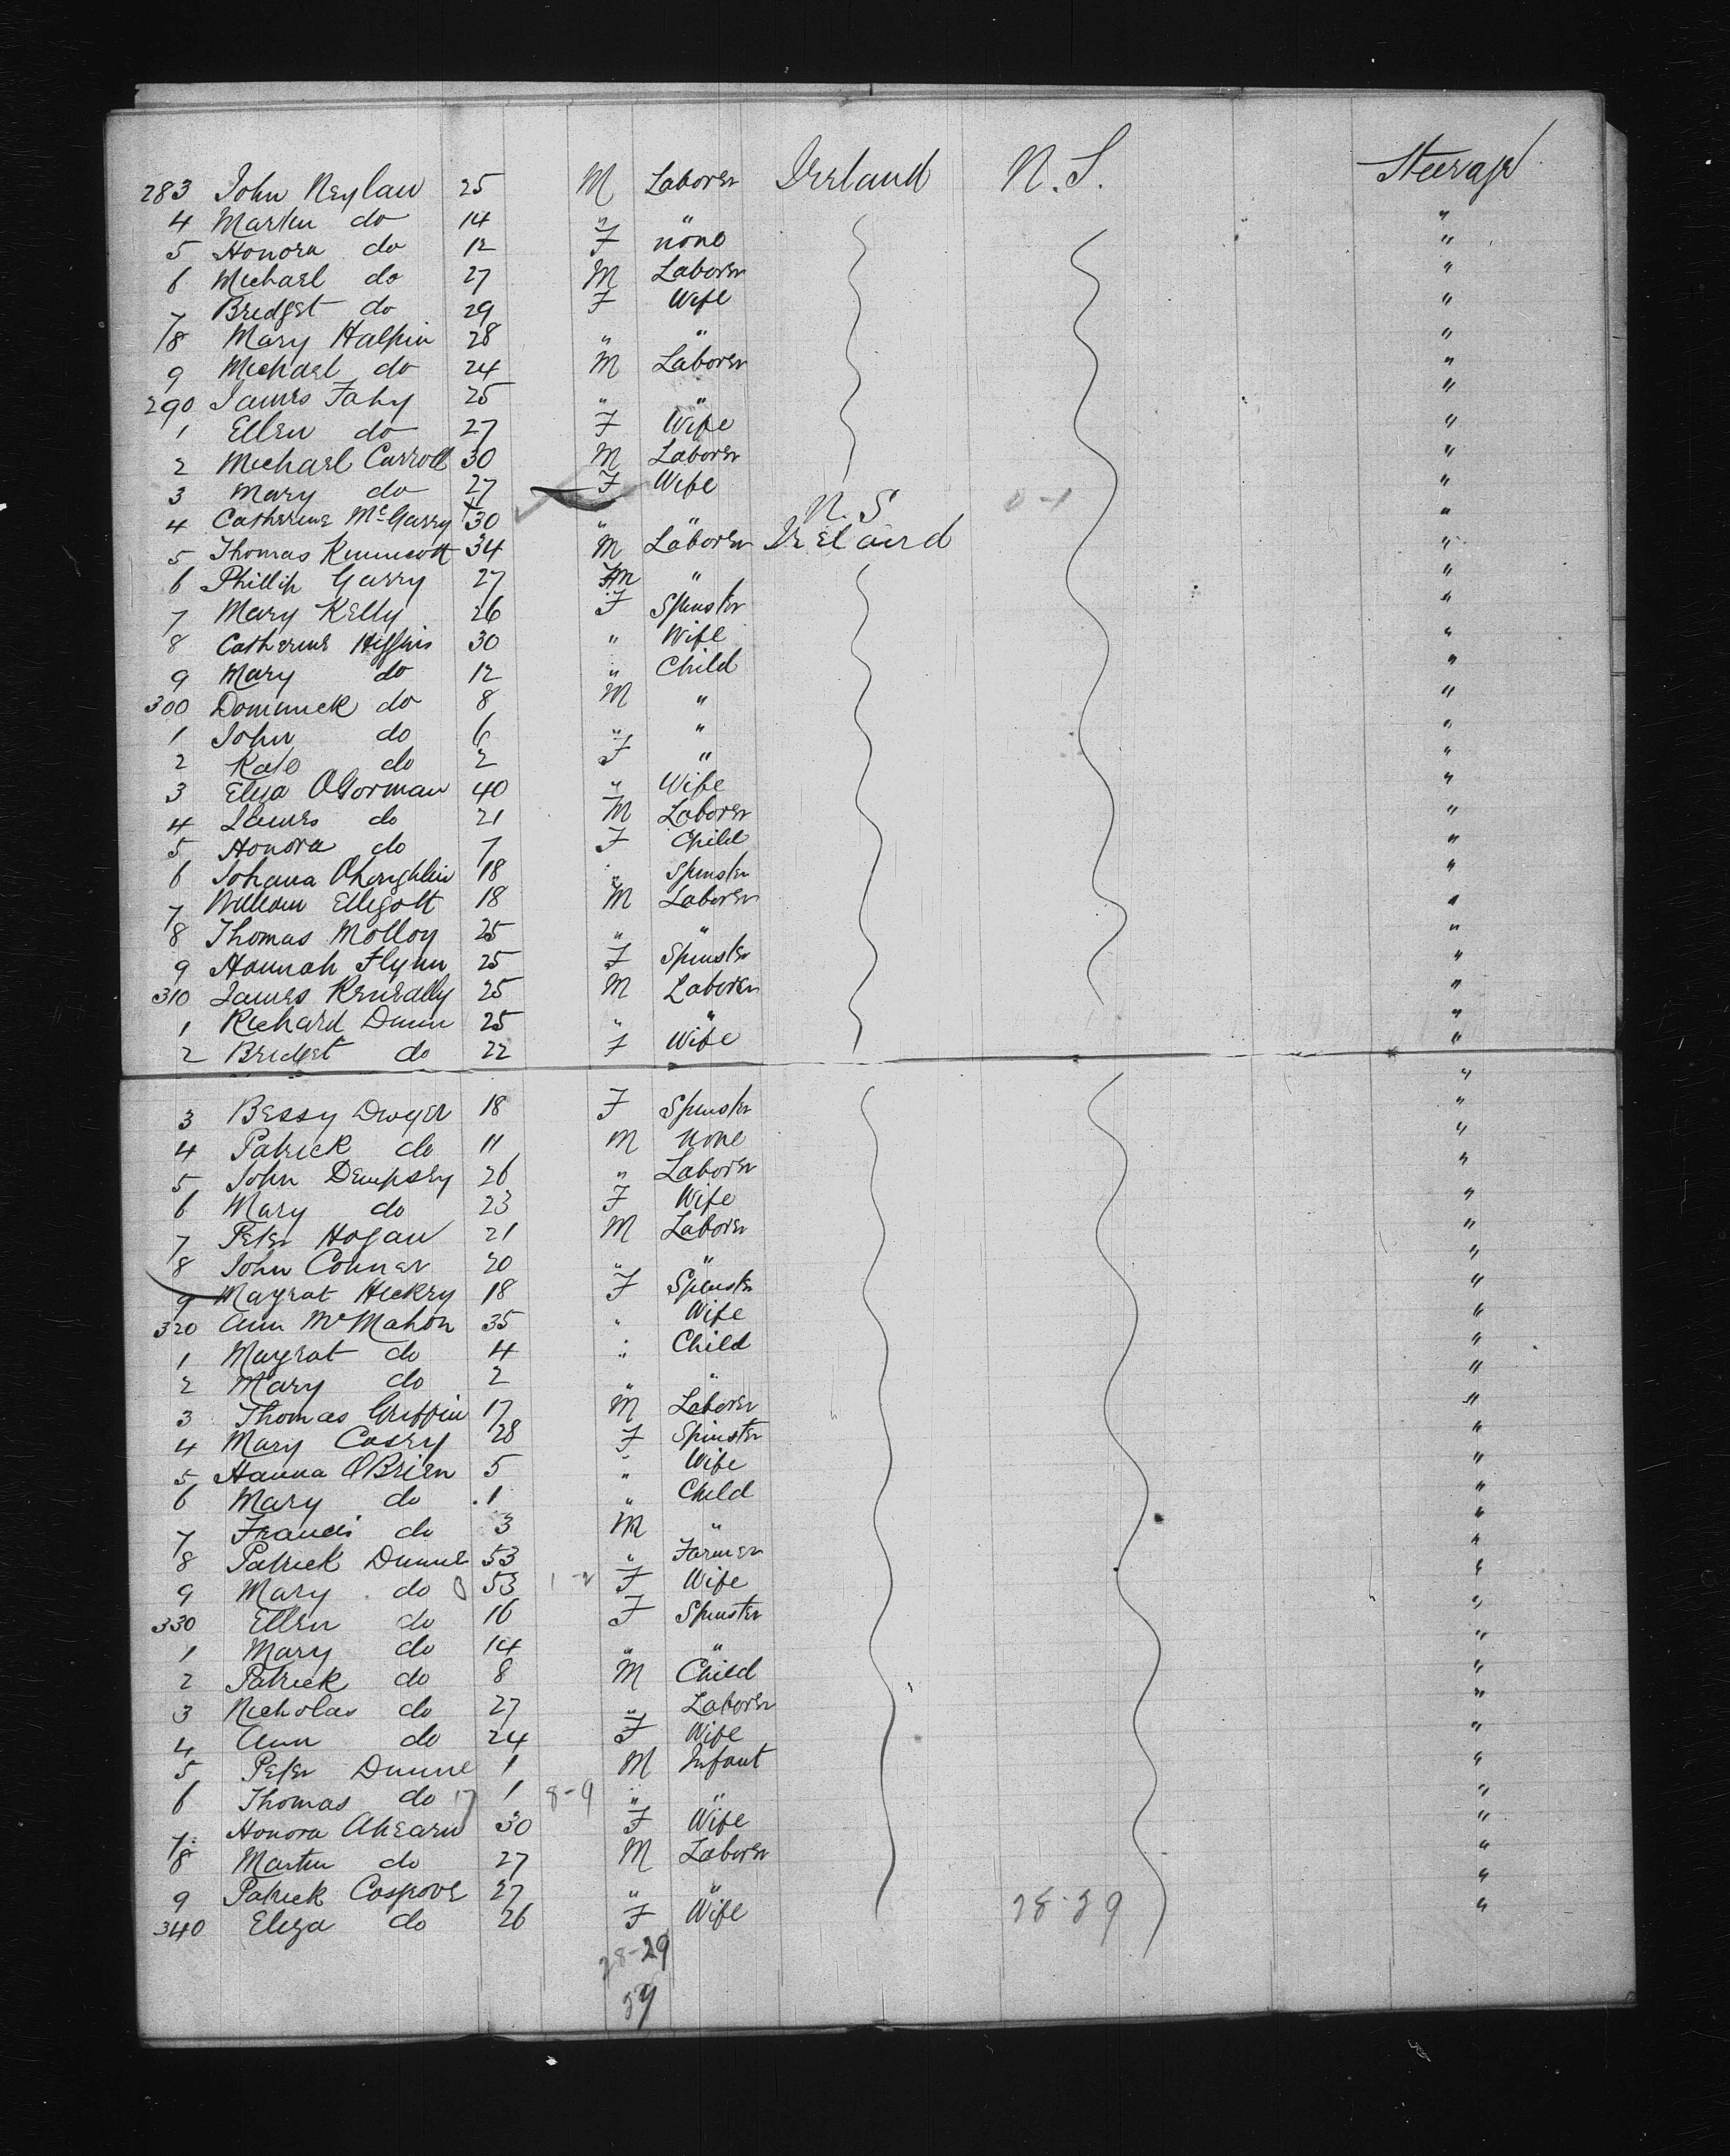 283 John Neylan 25 M Laborer Ireland N.S. Steerage
4 Martin do 14 " " "
5 Honora do 12 F none "
6 Michael do 27 M Laborer "
7 Bridget do 29 F Wife "
8 Mary Halpin 28 " " "
9 Michael do 24 M Laborer "
290 James Fahy 25 " " "
1 Ellen do 27 F Wife "
2 Michael Carroll 30 M Laborer "
3 Mary do 27 F Wife "
4 Catherine McGarry 30 " " N.S "
5 Thomas Kinnicott 34 M Laborer Ireland "
6 Phillip Garry 27 M " "
7 Mary Kelly 26 F Spinster "
8 Catherine Higgins 30 " Wife "
9 Mary do 12 " Child "
300 Dominick do 8 M " "
1 John do 6 " " "
2 Kate do 2 F " "
3 Eliza OGorman 40 " Wife "
4 James do 21 M Laborer "
5 Honora do 7 F Child "
6 Johana OLoughlin 18 " Spinster "
7 William Elligott 18 M Laborer "
8 Thomas Molloy 25 " " "
9 Hannah Flynn 25 F Spinster "
310 James Keneally 25 M Laborer "
1 Richard Dunn 25 " " "
2 Bridget do 22 F Wife "
"
3 Bessy Dwyer 18 F Spinster "
4 Patrick do 11 M none "
5 John Dempsey 26 " Laborer "
6 Mary do 23 F Wife "
7 Peter Hogan 21 M Laborer "
8 John Conner 20 " " "
9 Magrat Hickey 18 F Spinster "
320 Ann McMahon 35 " Wife "
1 Magrat do 4 " Child "
2 Mary do 2 " " "
3 Thomas Griffin 17 M Laborer "
4 Mary Casey 28 F Spinster "
5 Hanna OBrien 5 " Wife "
6 Mary do 1 " Child "
7 Francis do 3 M " "
8 Patrick Dunne 53 " Farmer "
9 Mary do 53 1-2 F Wife "
330 Ellen do 16 F Spinster "
1 Mary do 14 " " "
2 Patrick do 8 M Child "
3 Nicholas do 27 " Laborer "
4 Ann do 24 F Wife "
5 Peter Dunne 1 M Infant "
6 Thomas do 17 1 8-9 " " "
7 Honora Ahearn 30 F Wife "
8 Martin do 27 M Laborer "
9 Patrick Cosgrove 27 " " "
340 Eliza do 26 F Wife 28-29 "
28-29